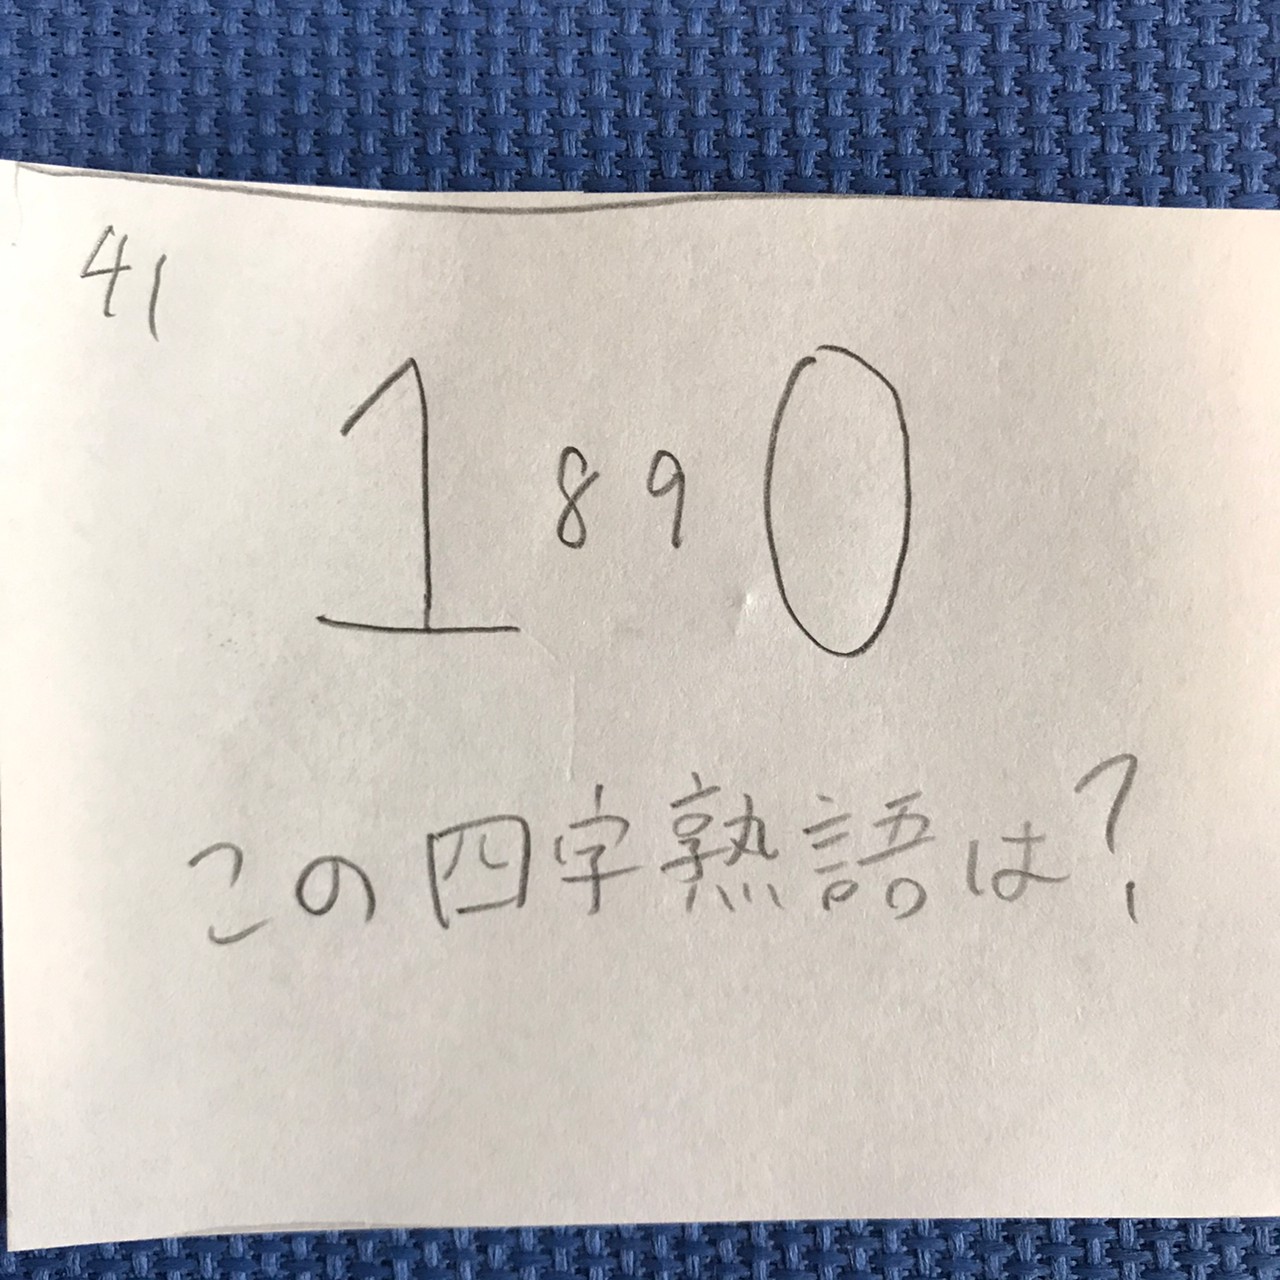 41
1890
この四字熟語は?